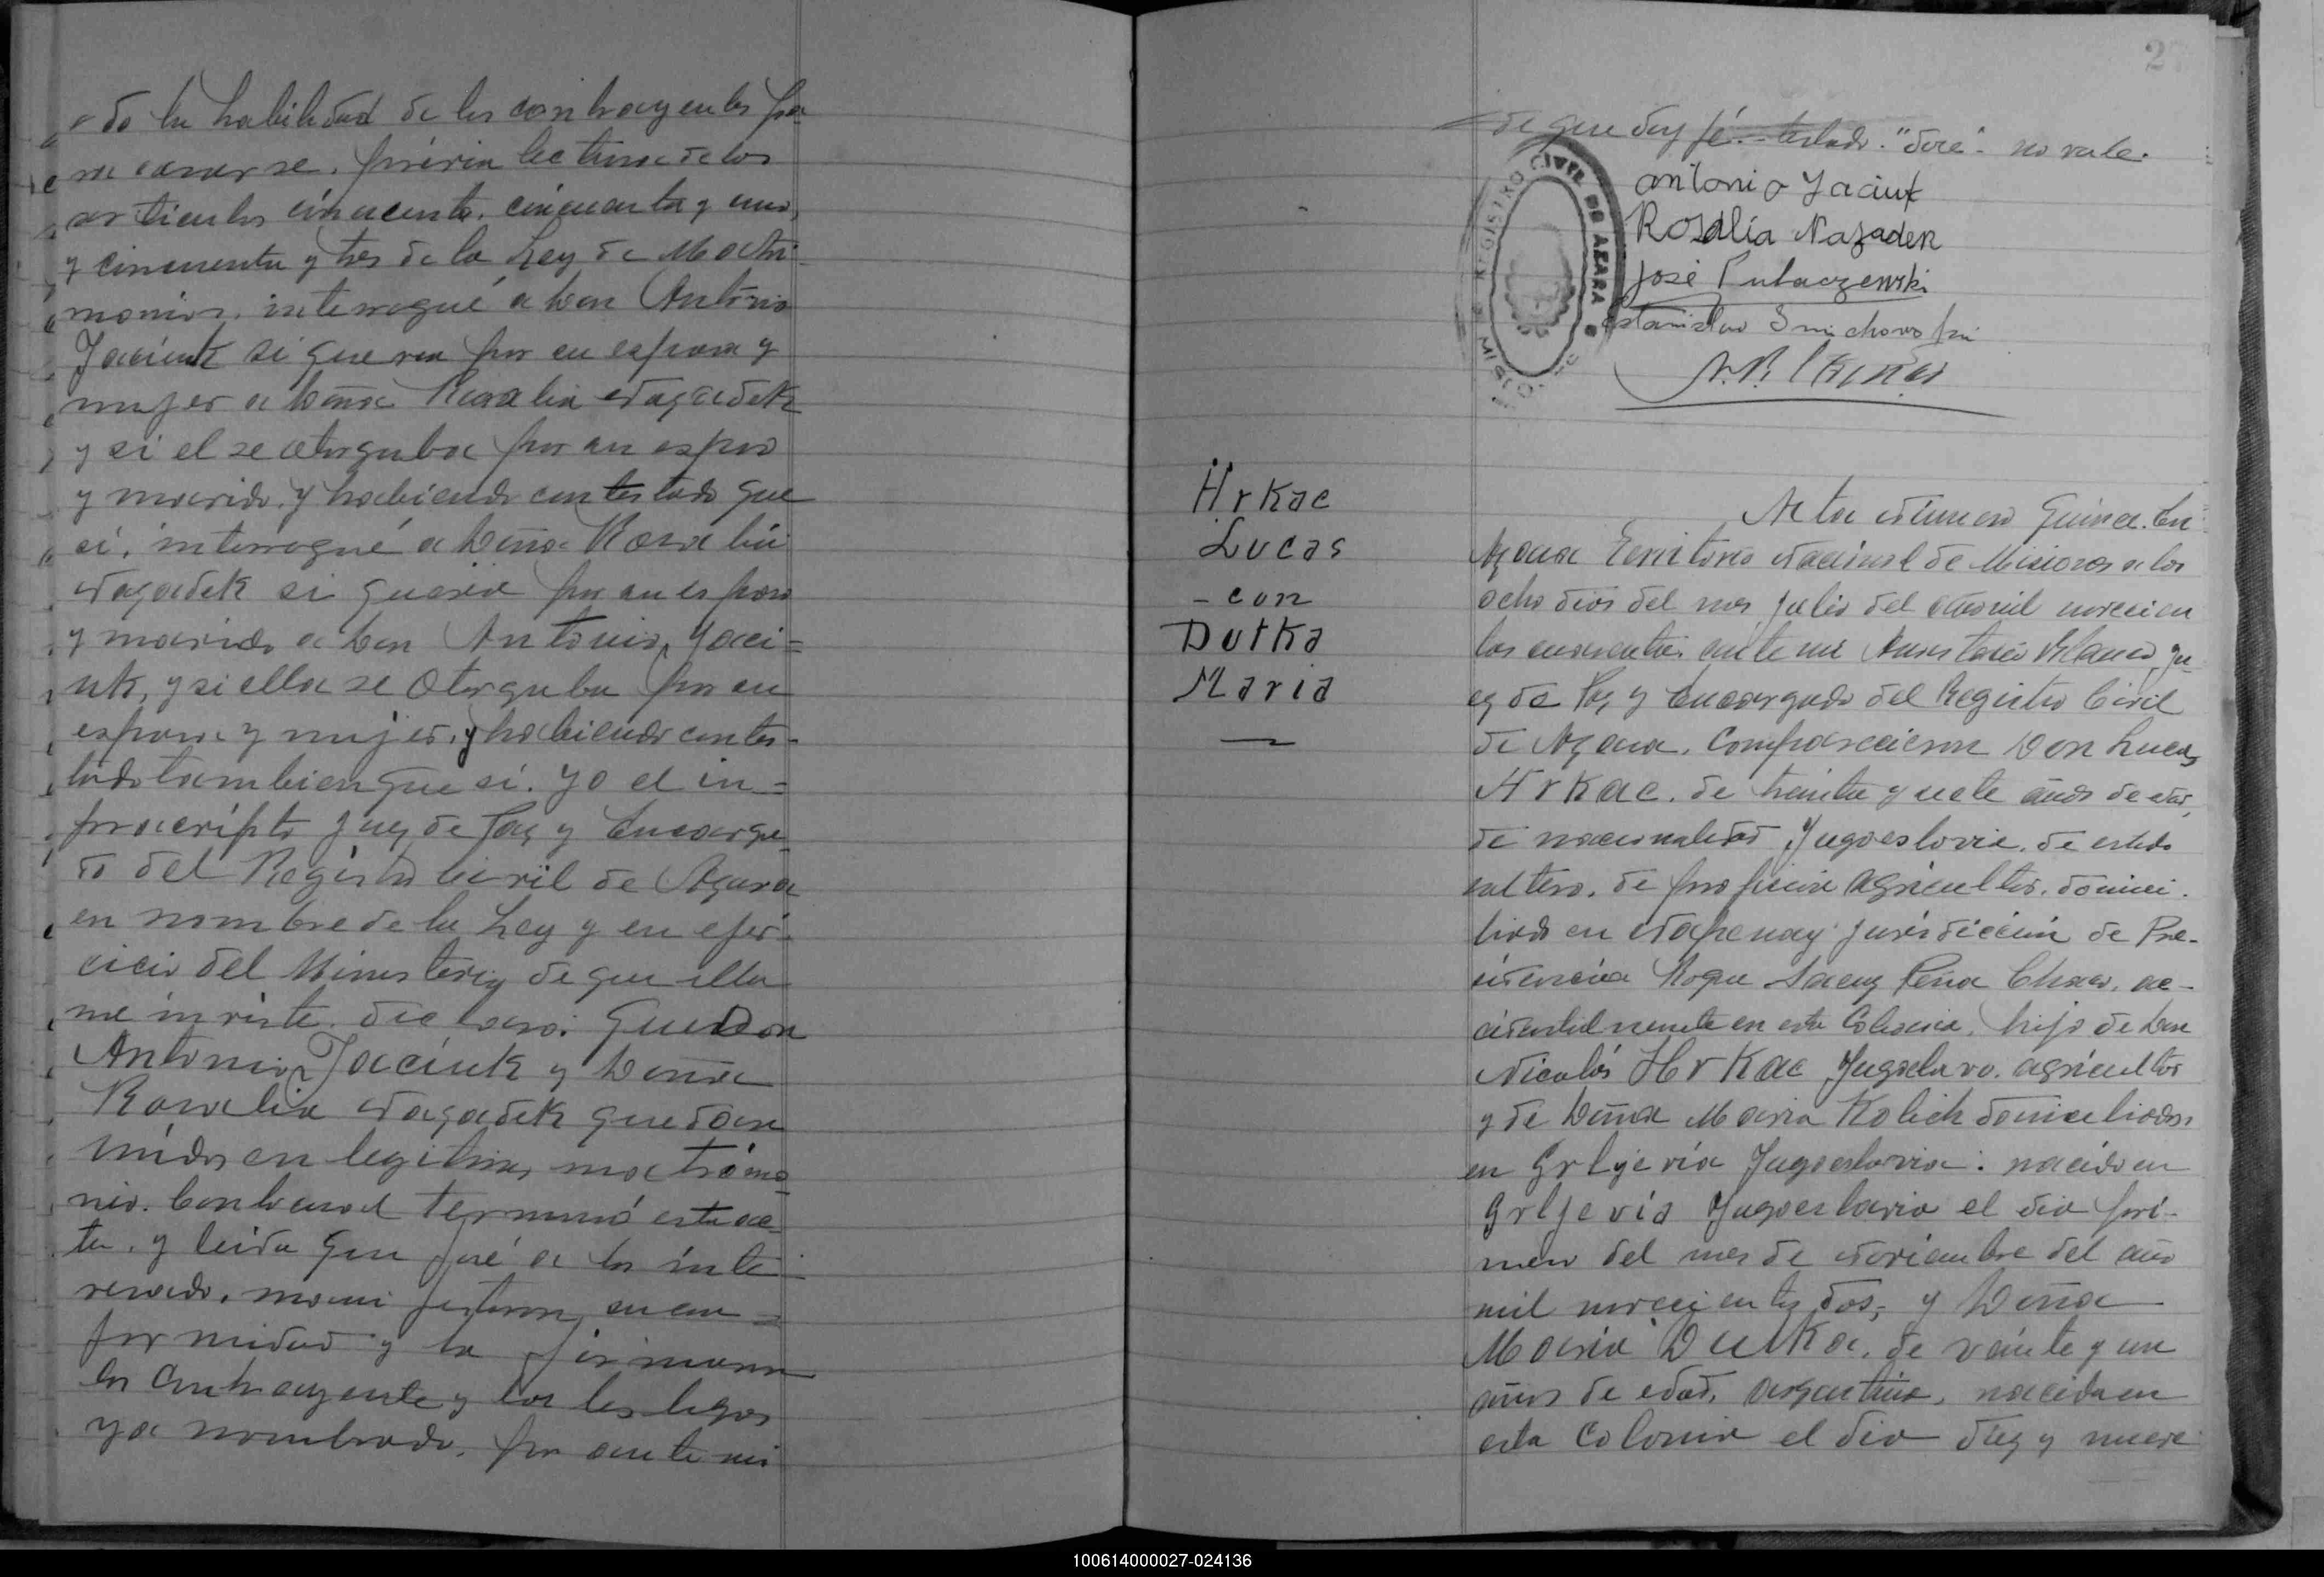 do la habilidad de los contrayentes pa-
ra casarse. prévia lectura de los
articulos cincuenta. cincuenta y uno,
y cincuenta y tres de la Ley de Matri-
monios. interrogué a Don António
Jaciuk si queria por su esposa y
mujer a Doña Rosalia Nazadek
y si el se otorgaba por su esposo
y marido. y habiendo contestado que
sí, interrogué a Doña Rosalia
Nazadek si queria por su esposo
y marido a Don Antonio, Jaci=
uk, y si ella se otorgaba por su
esposa y mujer. y habiendo contes-
tado tambien que sí. Yo el in=
frascripto Juez de Paz y Encarga-
do del Registro Civil de Azara
en nombre de la Ley y en ejer-
cicio del Ministerio de que ella
me inviste. declaro: Que Don
Antonio Jaciuk y Doña
Rosalia Nazadek quedan
unidos en legitimo matrimo-
nio. Con lo cual terminó esta ac-
ta. y leida que fué a los inte-
resados. manifestaron su con=
formidad y la firmaron
los contrayentes y los testigos
ya nombrado. por ante mi
2
de que doy fé.- testado. "doce"- no vale.
REGISTRO CIVIL DE AZARA
MISIONES
Antonio Jaciuk
Rosalía Nazadek
José Pulaczewski
Estanislao
Hrkac
Lucas
- con
Dutka
Maria
Acta Número Quince. En
Azara Territorio Nacional de Misiones a los
ocho dias del mes Julio del año mil novecien
tos cuarenta: ante mi Anastacio Blanco Ju-
ez de Paz y Encargado del Registro Civil
de Azara. Comparecieron Don Lucas
Hrkac. de treinta y siete años de edad,
de nacionalidad Yugoeslavia. de estado
soltero. de profesion agricultor. domici-
liado en Napenay jurisdiccion de Pre-
sidencia Roque Saenz Peña Chaco. ac-
cidentalmente en esta Colonia, hijo de Don
Nicolás Hrkac Yugoslavo. agricultor
y de Doña Maria Kolich domiciliados
en Grljevia Yugoeslavia: nacido en
Grljevia Yugoeslavia el dia pri-
mero del mes de Noviembre del año
mil novecientos dos; y Doña
Maria Dutka. de veinte y un
años de edad, argentina, nacida en
esta Colonia el dia diez y nueve
100614000027-024136